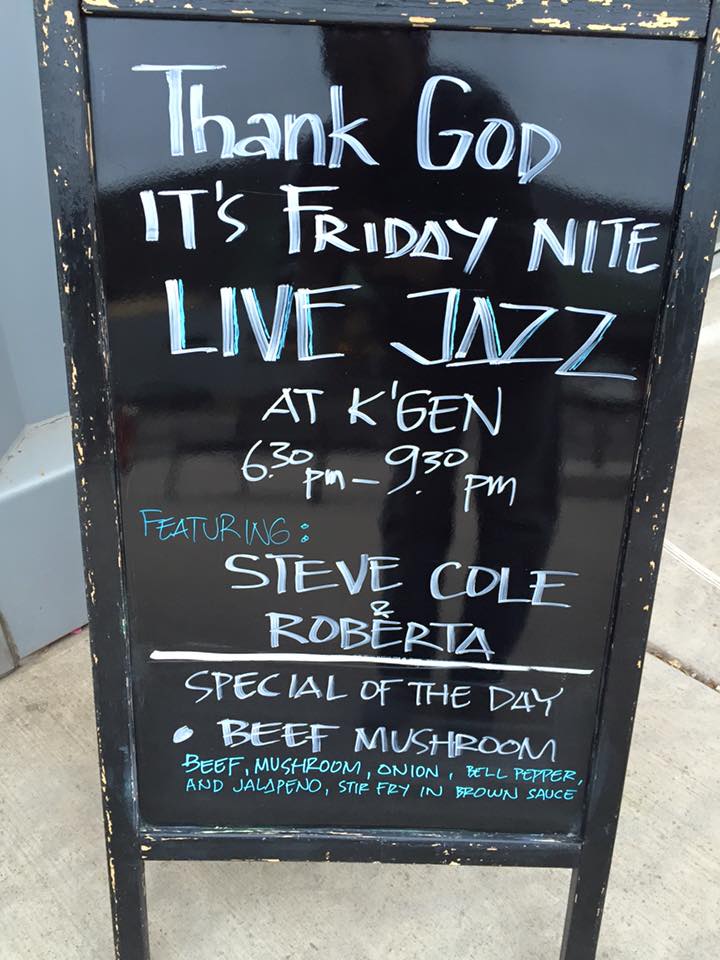 Thank God
IT'S FRIDAY NITE
LIVE JAZZ
AT K'GEN
6:30 pm - 9:30 pm
FEATURING:
STEVE COLE
&
ROBERTA
SPECIAL OF THE DAY
• BEEF MUSHROOM
BEEF, MUSHROOM, ONION, BELL PEPPER,
AND JALAPENO, STIR FRY IN BROWN SAUCE